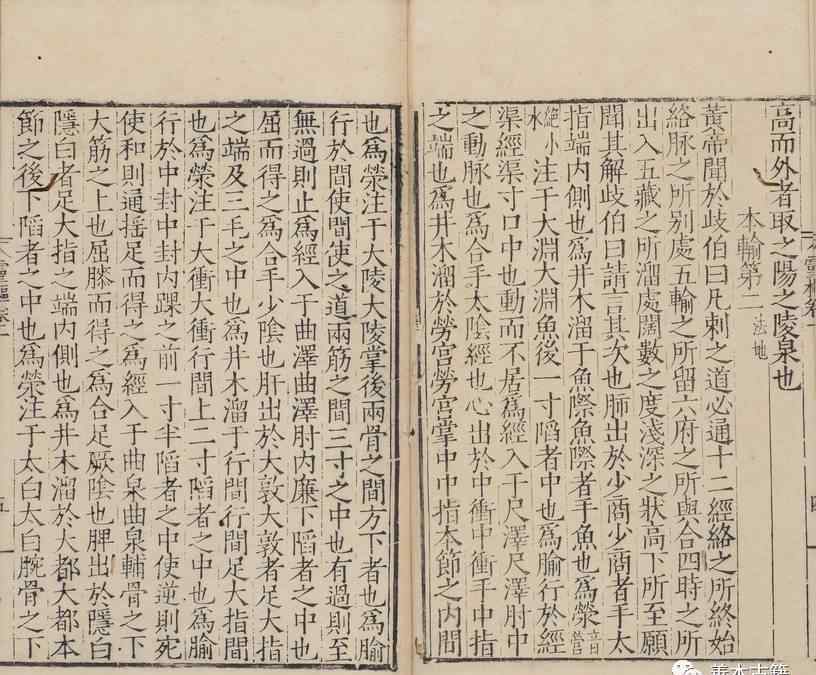 高而外者取之陽之陵泉也
本輸第二 法地
黃帝聞於歧伯曰凡刺之道必通十二經絡之所終始
絡脉之所別處五輸之所留六府之所與合四時之所
出入五藏之所溜處闊數之度淺深之狀高下所至願
聞其解歧伯曰請言其次也肺出於少商少商者手太
指端內側也爲井木溜于魚際魚際者手魚也爲滎音營
絕小水注于大淵大淵魚後一寸陷者中也爲腧行於經
渠經渠寸口中也動而不居爲經入于尺澤尺澤肘中
之動脉也爲合手太陰經也心出於中衝中衝手中指
之端也爲井木溜於勞宮勞宮掌中中指本節之內間
也爲滎注于大陵大陵掌後兩骨之間方下者也爲腧
行於間使間使之道兩筋之間三寸之中也有過則至
無過則止爲經入于曲澤曲澤肘內廉下陷者之中也
屈而得之爲合手少陰也肝出於大敦大敦者足大指
之端及三毛之中也爲井木溜于行間行間足大指間
也爲滎注于大衝大衝行間上二寸陷者之中也爲腧
行於中封中封內踝之前一寸半陷者之中使逆則宛
使和則通摇足而得之爲經入于曲泉曲泉輔骨之下
大筋之上也屈膝而得之爲合足厥陰也脾出於隱白
隱白者足大指之端內側也爲井木溜於大都大都本
節之後下陷者之中也爲滎注于太白太白腕骨之下
善本古籍